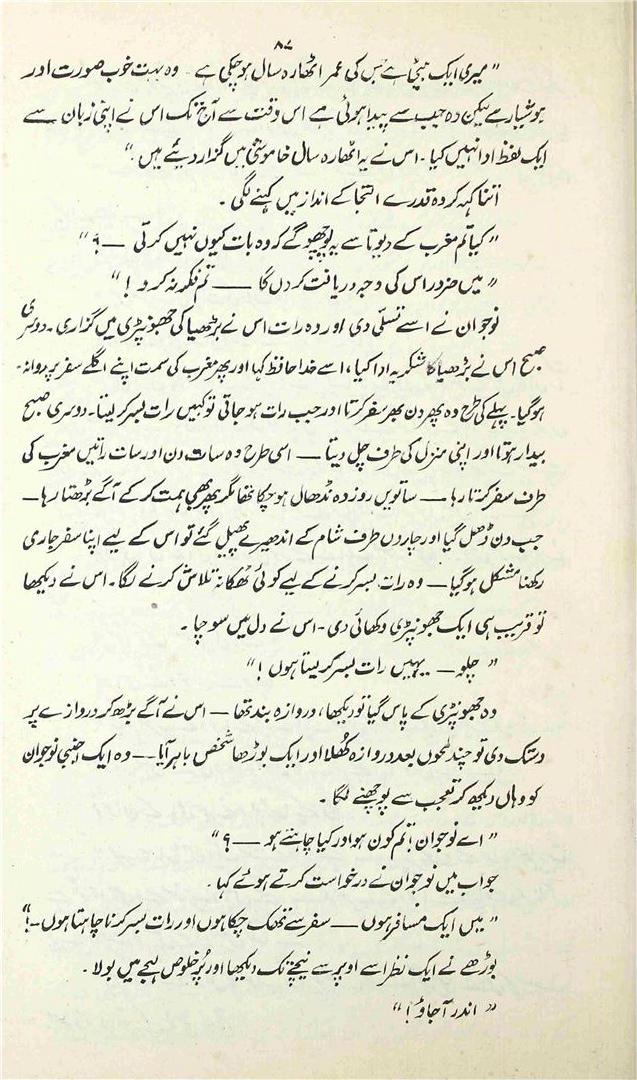 ۸۷
"میری ایک بچی ہے جس کی عمر اٹھارہ سال ہو چکی ہے - وہ بہت خوب صورت اور
ہوشیار ہے لیکن وہ جب سے پیدا ہوئی ہے اس وقت سے آج تک اس نے اپنی زبان سے
ایک لفظ ادا نہیں کیا - اس نے یہ اٹھارہ سال خاموشی میں گزار دیئے ہیں ."
اتنا کہہ کر وہ قدرے التجا کے انداز میں کہنے لگی .
"کیا تم مغرب کے دیوتا سے یہ پوچھو گے کہ وہ بات کیوں نہیں کرتی — ؟"
"میں ضرور اس کی وجہ دریافت کر دں گا — تم فکر نہ کرو !"
نوجوان نے اسے تسلی دی اور وہ رات اس نے بڑھیا کی جھونپڑی میں گزاری - دوسری
صبح اس نے بڑھیا کا شکریہ ادا کیا ، اسے خدا حافظ کہا اور پھر مغرب کی سمت اپنے اگلے سفر پر روانہ -
ہو گیا - پہلے کی طرح وہ پھر دن بھر سفر کرتا اور جب رات ہو جاتی تو کہیں رات بسر کر لیتا - دوسری صبح
بیدار ہوتا اور اپنی منزل کی طرف چل دیتا — اسی طرح وہ سات دن اور سات راتیں مغرب کی
طرف سفر کرتا رہا — ساتویں روز وہ نڈھال ہو چکا تھا مگر پھر بھی ہمت کر کے آگے بڑھتا رہا —
جب دن ڈھل گیا اور چاروں طرف شام کے اندھیرے پھیل گئے تو اس کے لیے اپنا سفر جاری
رکھنا مشکل ہو گیا — وہ رات بسر کرنے کے لیے کوئی ٹھکانہ تلاش کرنے لگا - اس نے دیکھا
تو قریب ہی ایک جھونپڑی دکھائی دی - اس نے دل میں سوچا .
"چلو — یہیں رات بسر کر لیتا ہوں !"
وہ جھونپڑی کے پاس گیا تو دیکھا ، دروازہ بند تھا — اس نے آگے بڑھ کر دروازے پر
دستک دی تو چند لمحوں بعد دروازہ کھلا اور ایک بوڑھا شخص باہر آیا — وہ ایک اجنبی نوجوان
کو وہاں دیکھ کر تعجب سے پوچھنے لگا .
"اے نوجوان ! تم کون ہو اور کیا چاہتے ہو — ؟"
جواب میں نوجوان نے درخواست کرتے ہوئے کہا .
"میں ایک مسافر ہوں — سفر سے تھک چکا ہوں اور رات بسر کرنا چاہتا ہوں - !"
بوڑھے نے ایک نظر اسے اوپر سے نیچے تک دیکھا اور پُر خلوص لہجے میں بولا .
"اندر آ جاؤ !"